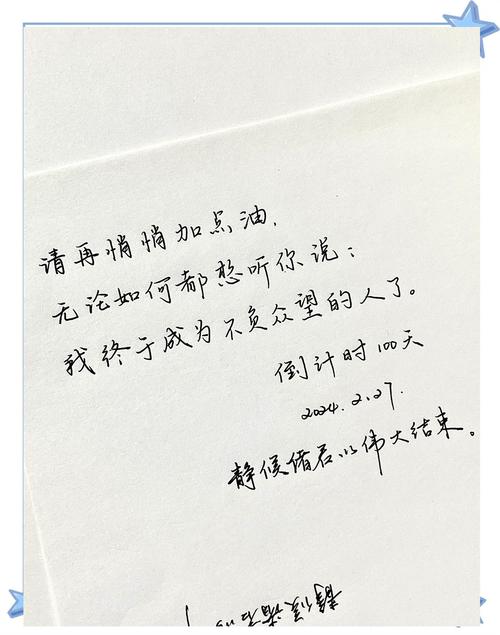 请再悄悄加点油,
无论如何都想听你说:
我终于成为不负众望的人了。
倒计时100天
2024.2.27.
静候诸君以伟大结束。